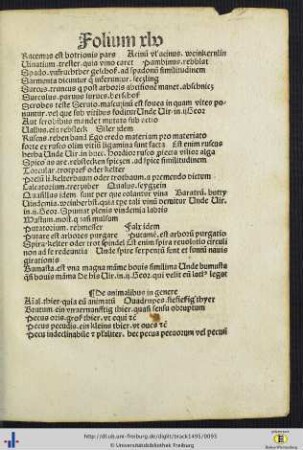 Folium xlv
Racemus est botrionis pars Acinum vel acinus. weinkernlin
Vinatium .trester. quia vino caret Pambinus. rebblat
Spado. vnfruchtber geschoß. ad spadonum similitudinem
Sarmenta dicuntur que inseruntur. setzling
Surcus. truncus qui post arboris abscisionem manet.
Surculus. parvus surcus. herschoß
Scrobes teste Seruio. masculini est fossa in quam vites ponantur. vel que sub vitibus foditur Unde Uir.in.ij.Geor
Aut scrobibus mandet mutato sub
Uallus. ein rebsteck Siler idem
Rusine. reben band Ego credo materiam pro materiato
forte ex rusco olim vitis ligamina sunt facta Est enim ruscus
herba Unde Uir. in buco. Horidior rusco proiecta vilior alga
Spice so are. rebstecken spitzen. ad spice similitudinem
Torcular .trotpress oder kelter
Prelum. kelterbaum oder trotbaum. a premendo dictum
Calcatorium. tretzuber Qualus. seygzein
Qualillus idem sunt per que colantur vina Baratrum. butty
Uindemia. weinherbst. quia tpe tali vinum demitur Unde Uir.
in.ij.Geor. Spumat plenis vindemia labris
Mustum. most. quasi multum
Putatorium. rebmesser Falx idem
Putare est arbores purgare Putamen. est arborum purgatio
Spira. kelter oder trot spindel Est enim spira reuolutio circuli
non ad se redeuntis Unde spire serpentum sunt et funium nauis
girationis
Bumasta. est vna magna mamme bouis similima Unde bumasta
quasi bouis mamma De his Uir. in.ij.Geor. qui velit eum latius legat
De animalibus in genere
Animal. thier. quia est animatum Quadrupes. vierfiessig thyer
Brutum. ein vnuernunfftig thier. quasi sensu obrutum
Pecus oris. groß thier. vt equi etc
Pecus pecudis. ein kleins thier. vt oues etc
Pecu indeclinabile in plurali. hec pecua pecuorum vel pecuum
http://dl.ub.uni-freiburg.de/diglit/brack1495/0093
© Universitätsbibliothek Freiburg